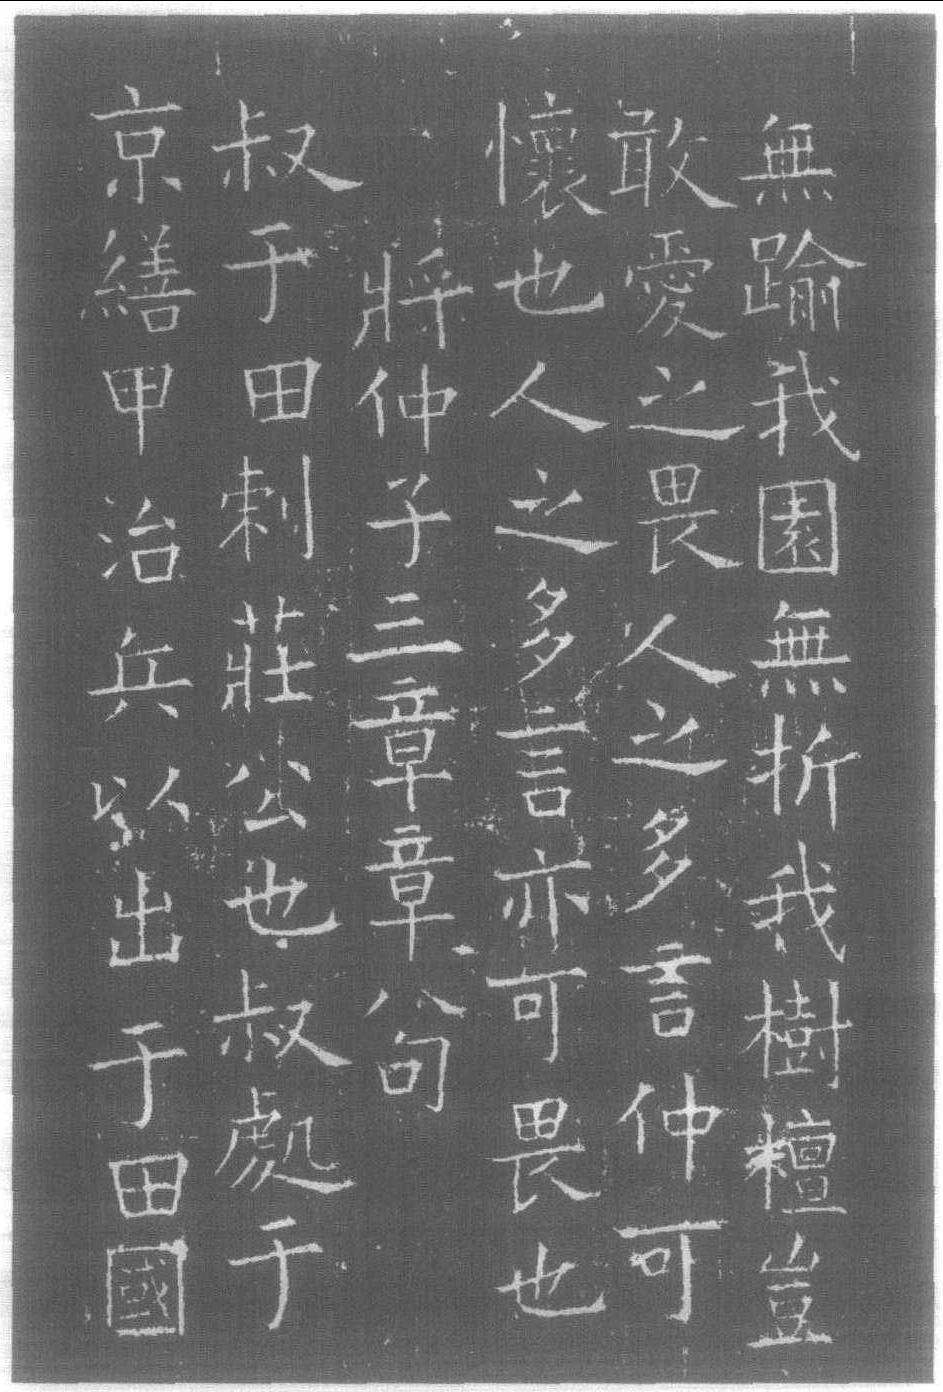 無踰我園無折我樹檀豈
敢愛之畏人之多言仲可
懷也人之多言亦可畏也
將仲子三章章八句
叔于田刺莊公也叔處于
京繕甲治兵以出于田國